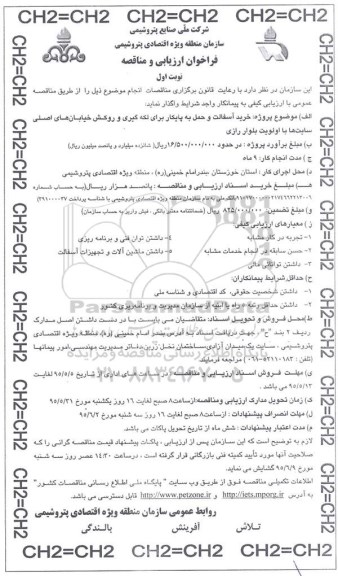 CH2=CH2 CH2=CH2 CH2=CH2
شرکت ملی صنایع پتروشیمی
سازمان منطقه ویژه اقتصادی پتروشیمی
فراخوان ارزیابی و مناقصه
نوبت اول
این سازمان در نظر دارد با رعایت قانون برگزاری مناقصات انجام موضوع ذیل را از طریق مناقصه
عمومی با ارزیابی کیفی به پیمانکار واجد شرایط واگذار نماید:
الف) موضوع پروژه: خرید آسفالت و حمل به پایکار برای لکه گیری و روکش خیابان‌های اصلی
سایت‌ها با اولویت بلوار رازی
ب) مبلغ برآورد پروژه: در حدود ۱۶/۵۰۰/۰۰۰/۰۰۰ ریال (شانزده میلیارد و پانصد میلیون ریال)
ج) مدت انجام کار: ۹ ماه
د) محل اجرای کار: استان خوزستان بندرامام خمینی(ره)، منطقه ویژه اقتصادی پتروشیمی
هـ) مبلغ خرید اسناد ارزیابی و مناقصه: پانصد هزار ریال
و) مبلغ تضمین: ۸۲۵/۰۰۰/۰۰۰ ریال
ز) معیارهای ارزیابی کیفی
۱- تجربه در کار مشابه
۴- داشتن توان فنی و برنامه ریزی
۲- حسن سابقه در انجام خدمات مشابه
۵- داشتن ماشین آلات و تجهیزات آسفالت
۳- داشتن توانائی مالی
ح) حداقل شرایط پیمانکاران
۱- داشتن شخصیت حقوقی، کد اقتصادی و شناسه ملی
۲- داشتن حداقل رتبه راه یا ابنیه از سازمان مدیریت و برنامه‌ریزی کشور
ط) محل فروش و تحویل اسناد: متقاضیان می بایست با در دست داشتن اصل مدارک
ردیف ۲ بند "ح" جهت دریافت اسناد به آدرس بندر امام خمینی (ره)، منطقه ویژه اقتصادی
پتروشیمی
مراجعه نمایند.
ی) مهلت فروش اسناد ارزیابی و مناقصه: در ساعات اداری از تاریخ ۹۵/۵/۵ لغایت
۹۵/۵/۱۳ می باشد.
ک) زمان تحویل مدارک ارزیابی ومناقصه: ازساعت ۸ صبح لغایت ۱۶ روز یکشنبه مورخ ۹۵/۵/۳۱
ل) مهلت انصراف پیشنهادات: ازساعت ۸ صبح لغایت ۱۶ روز سه شنبه مورخ ۹۵/۶/۲
م) مدت اعتبار پیشنهادات: شش ماه از تاریخ تحویل پاکات می باشد.
لازم به توضیح است که این سازمان پس از ارزیابی، پاکات پیشنهاد قیمت مناقصه گرانی را که
صلاحیت آنها مورد تأیید کمیته فنی بازرگانی قرار گرفته است، درساعت ۱۴:۳۰ عصر روز سه شنبه
مورخ ۹۵/۶/۹ گشایش می نماید.
اطلاعات تکمیلی مناقصه فوق از طریق وب سایت "پایگاه ملی اطلاع رسانی مناقصات کشور"
به آدرس http://iets.mporg.ir و http://www.petzone.ir قابل دسترسی می باشد.
روابط عمومی سازمان منطقه ویژه اقتصادی پتروشیمی
تلاش آفرینش بالندگی
CH2=CH2 CH2=CH2 CH2=CH2